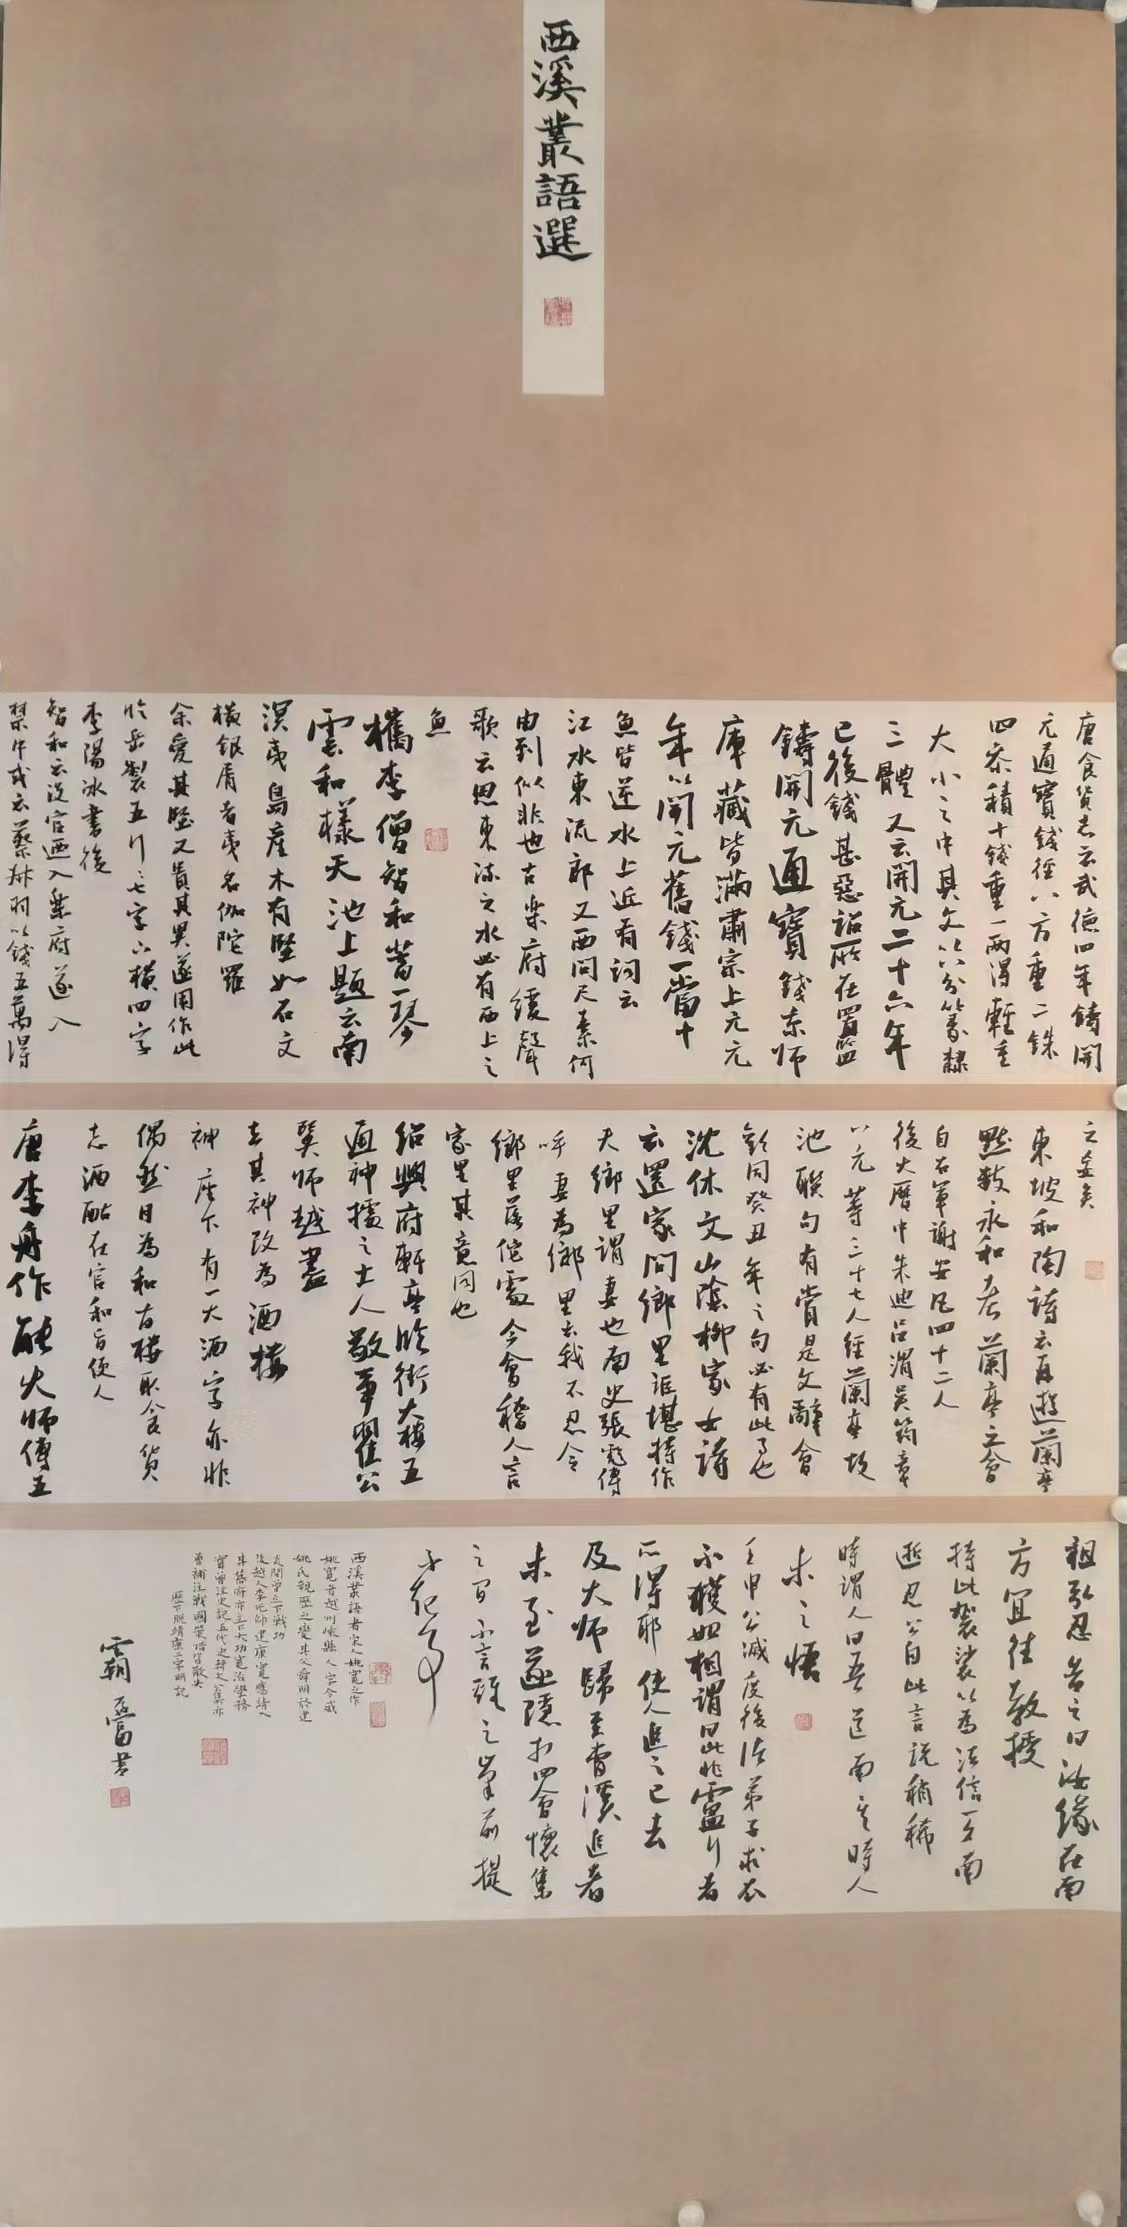 西溪叢語選
唐食貨志云武德四年鑄開
元通寶錢徑八分重二銖
四絫積十錢重一兩得輕重
大小之中其文以八分篆隸
三體又云開元二十六年
已後錢甚惡詔所在置監
鑄開元通寶錢京師
庫藏皆滿肅宗上元元
年以開元舊錢一當十
魚皆逆水上近有詞云
江水東流郎又西問尺素何
由到似非也古樂府緩聲
歌云思東流之水必有西上之
魚
檇李僧智和蓄一琴
雲和樣天池上題云南
溟夷島產木有堅如石文
橫銀屑者夷名伽陀羅
余愛其堅又貴其異遂用作此
臨岳製五行三七字六橫四字
李陽冰書後
智和云沒官迺入樂府遂入
禁中或云蔡叔羽以錢五萬得
之矣
東坡和陶詩云再遊蘭亭
默數永和者蘭亭之會
自右軍謝安凡四十二人
後大曆中朱迪呂渭吳筠章
八元等三十七人經蘭亭故
池聯句有賞是文辭會
歡同癸丑年之句必有此事也
沈休文山陰柳家女詩
云還家問鄉里詎堪持作
夫鄉里謂妻也南史張彪傳
呼妻為鄉里云我不忍令
鄉里落佗處今會稽人言
家里其意同也
紹興府軒亭臨街大樓五
通神據之士人敬事翟公
巽師越盡
去其神改為酒樓
神座下有一大酒字亦非
偶然目為和旨樓取食貨
志酒酤在官和旨便人
唐李舟作能大師傳五
祖弘忍告之曰汝緣在南
方宜往教授
持此袈裟以為法信一夕南
逝忍公自此言說稍稀
時謂人曰吾道南矣時人
未之悟
壬申公滅度後諸弟子求衣
不獲始相謂曰此非盧行者
所得耶使人追之已去
及大師歸至曹溪追者
未至遂隱於四會懷集
之間不言雞之肇前提
西溪叢語者宋人姚寬之作
姚寬者越州嵊縣人宋令威
姚氏親歷之變其父舜明於建
炎間曾立下戰功
後越人李光帥建康寬應請入
其幕府亦立下大功寬治學務
實曾注史記五代史韓文公集亦
曾補注戰國策惜皆散失
霸
書